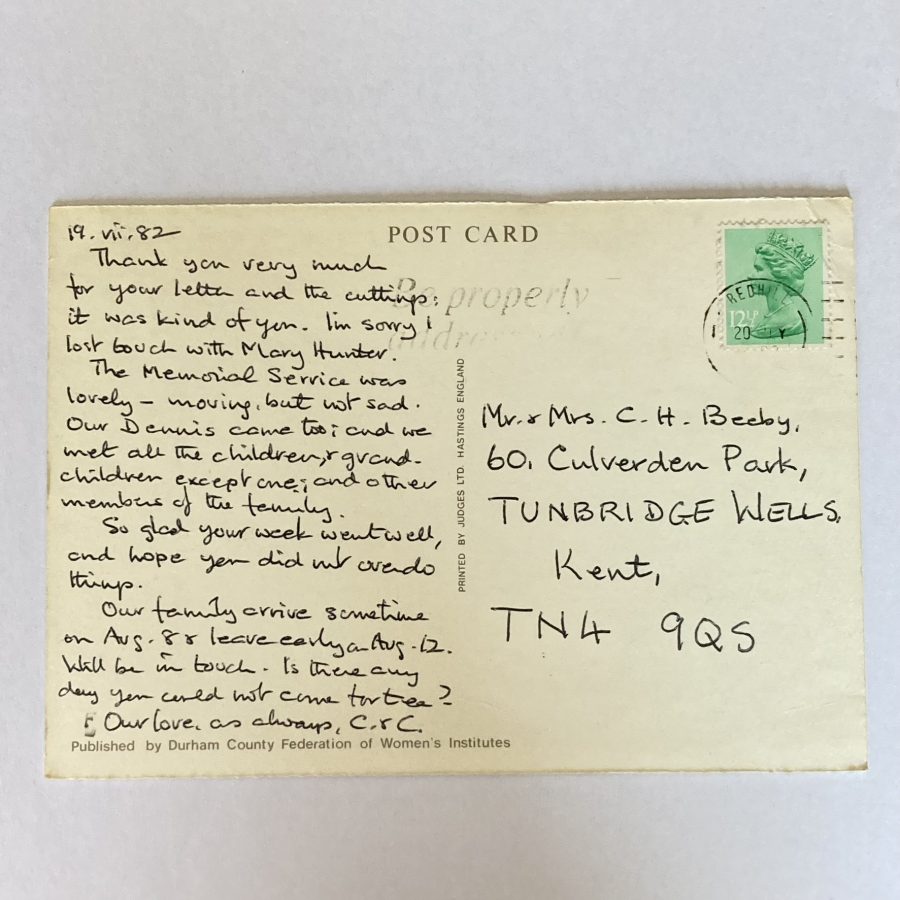 19.vii.82
Thank you very much
for your letter and the cuttings:
it was kind of you. I'm sorry I
lost touch with Mary Hunter.
The Memorial Service was
lovely – moving, but not sad.
Our Dennis came too; and we
met all the children, & grand-
children except one; and other
members of the family.
So glad your week went well,
and hope you did not overdo
things.
Our family arrive sometime
on Aug. 8 & leave early on Aug. 12.
Will be in touch. Is there any
day you could not come for tea?
Our love, as always, C. & C.
Published by Durham County Federation of Women's Institutes
POST CARD
Be properly
addressed
PRINTED BY JUDGES LTD. HASTINGS ENGLAND
REDHILL
20
12½P
Mr. & Mrs. C. H. Beeby,
60, Culverden Park,
TUNBRIDGE WELLS,
Kent,
TN4 9QS